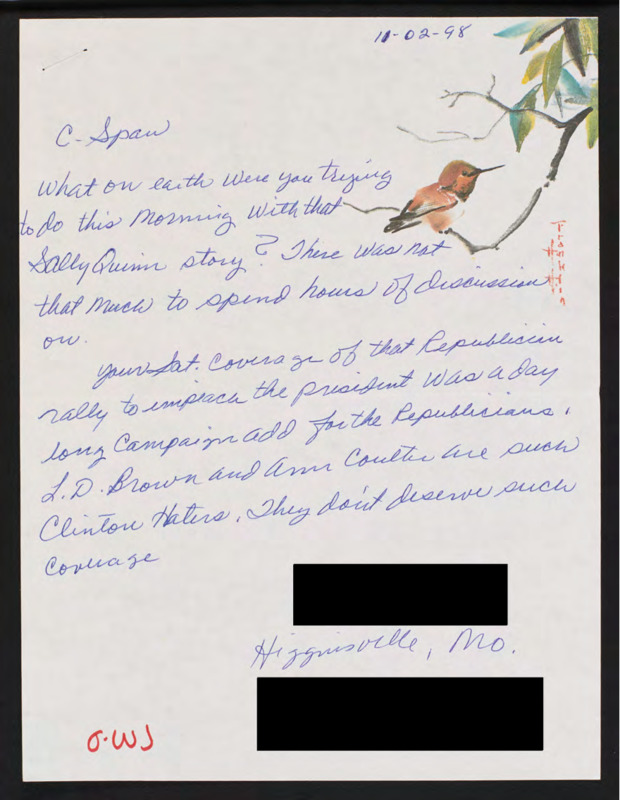 11-02-98
C-Span
What on earth were you trying
to do this Morning With that
Sally Quinn story? There was not
that Much to spend hours of discussion
on.
your Sat. Coverage of that Republician
rally to impeach the president was a day
long Campaign add for the Republicians.
L.D. Brown and Ann Coulter are such
Clinton Haters. They don't deserve such
Coverage
Higginsville, Mo.